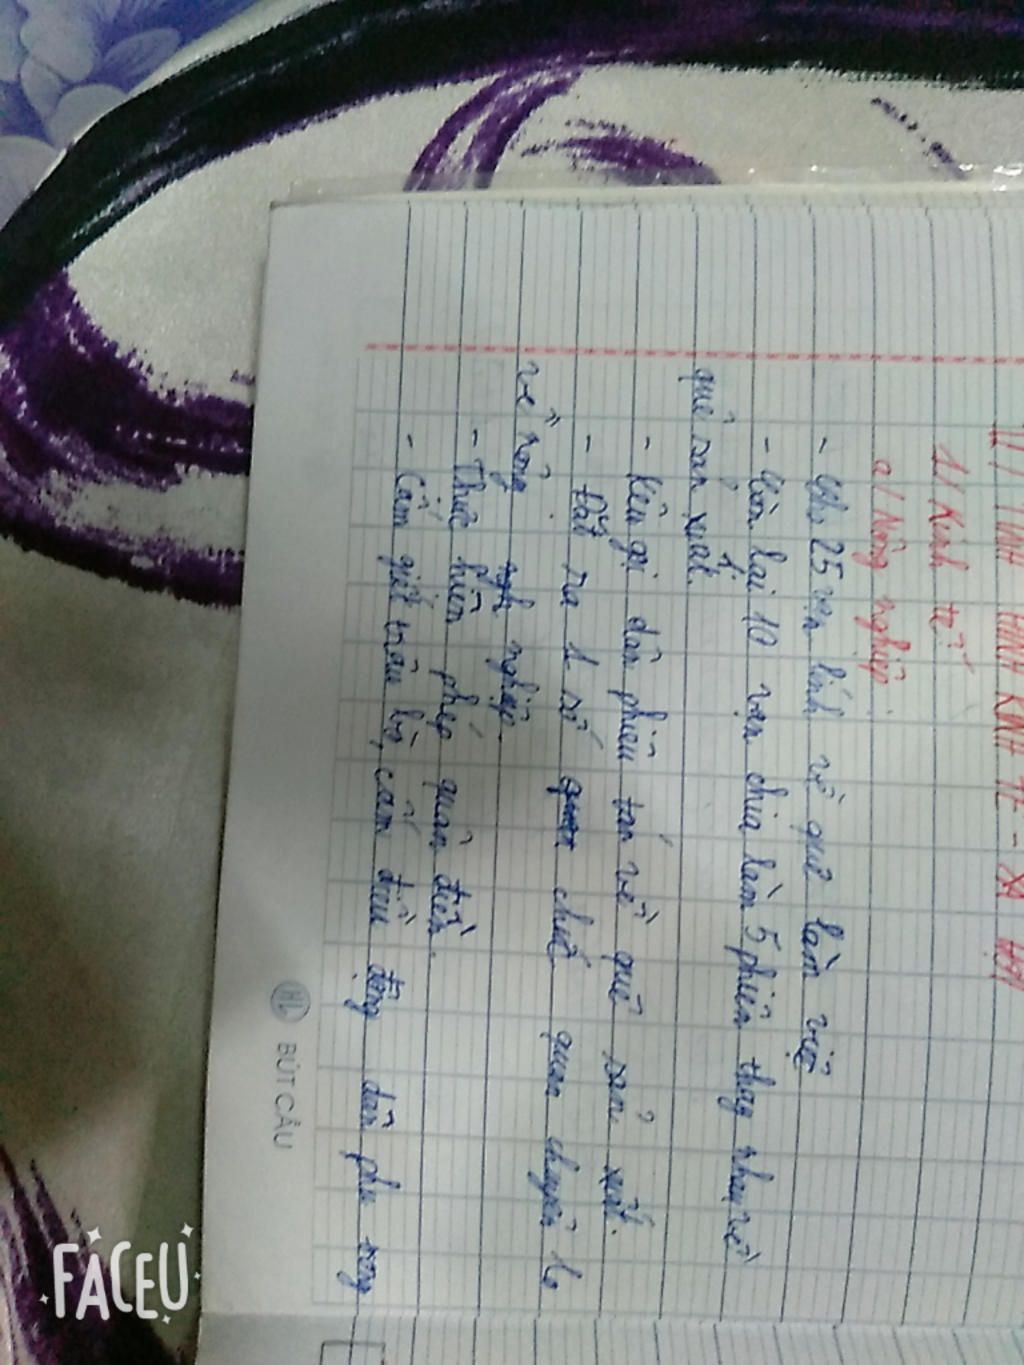 II / TÌNH HÌNH KINH TẾ - XÃ HỘI
1/ Kinh tế
a/ Nông nghiệp
- Cho 25 vạn lính về quê làm việc
- Còn lại 10 vạn chia làm 5 phiên thay nhau về
quê sản xuất.
- Kêu gọi dân phiêu tán về quê sản xuất.
- Đặt ra 1 số chức quan chuyên lo
về nông nghiệp.
- Thực hiện phép quân điền.
- Cấm giết trâu bò, cấm điều động dân phu trong
HL BÚT CÂU
FACEU